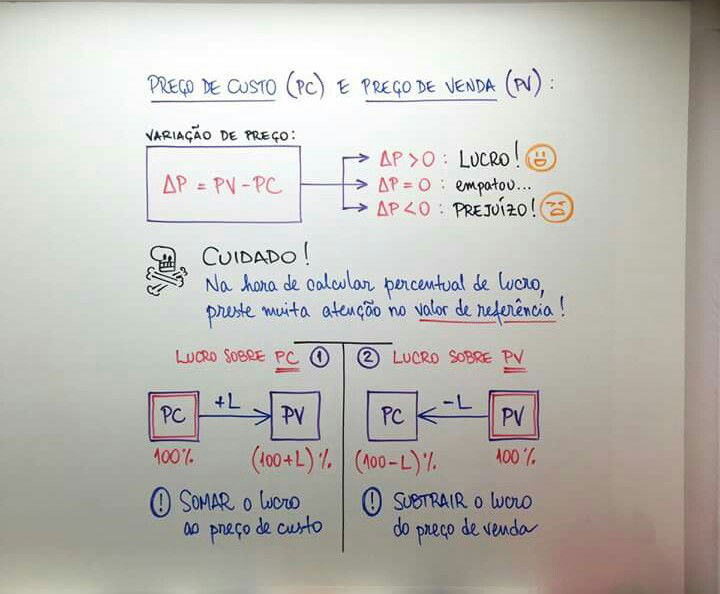 PREÇO DE CUSTO (PC) E PREÇO DE VENDA (PV):
VARIAÇÃO DE PREÇO:
ΔP = PV - PC
ΔP > 0 : LUCRO!
ΔP = 0 : empatou...
ΔP < 0 : PREJUÍZO!
CUIDADO!
Na hora de calcular percentual de lucro,
preste muita atenção no valor de referência!
LUCRO SOBRE PC 1
PC +L PV
100% (100+L)%
! SOMAR o lucro
ao preço de custo
2 LUCRO SOBRE PV
PC -L PV
(100-L)% 100%
! SUBTRAIR o lucro
do preço de venda